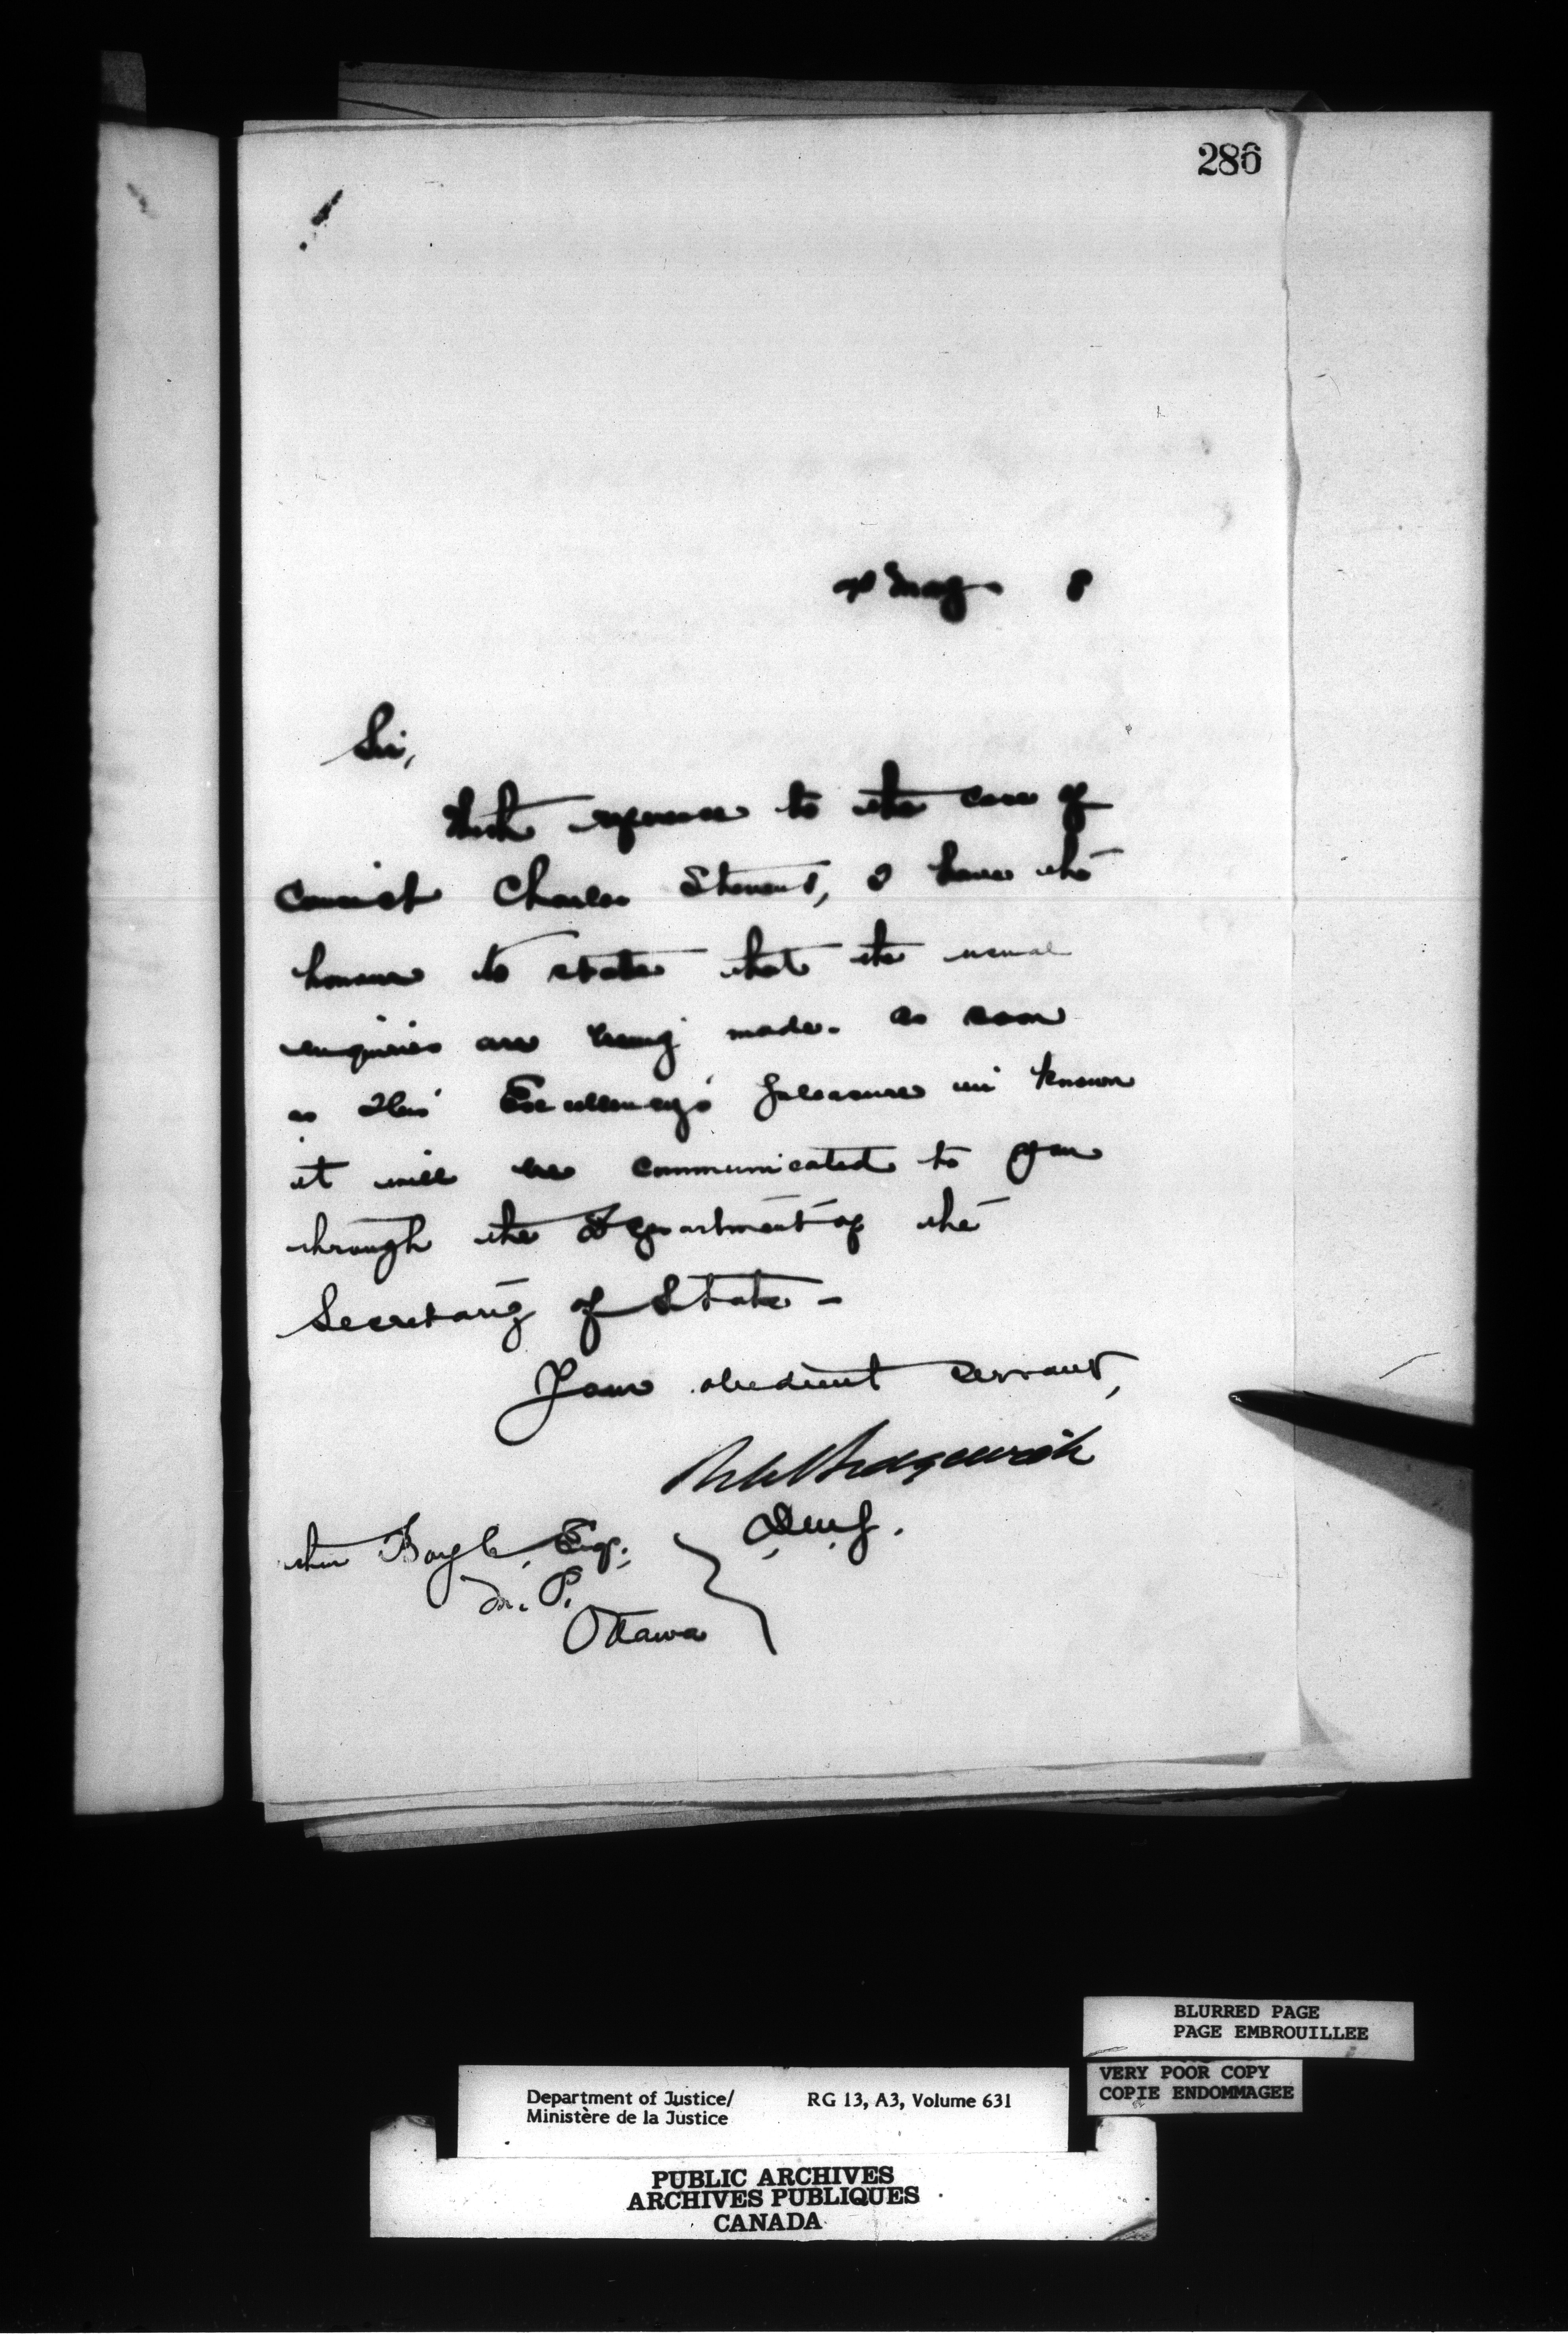 286
May 8
Sir,
With reference to the case of
Convict Charles Stevens, I have the
honour to state that the usual
enquiries are being made. As soon
as His Excellency's pleasure is known
it will be communicated to you
through the Department of the
Secretary of State -
Your obedient servant,
Sedgewick
D.M.J.
Boyle, Esq.
M. P.
Ottawa
BLURRED PAGE
PAGE EMBROUILLEE
VERY POOR COPY
COPIE ENDOMMAGEE
Department of Justice/ RG 13, A3, Volume 631
Ministère de la Justice
PUBLIC ARCHIVES
ARCHIVES PUBLIQUES
CANADA